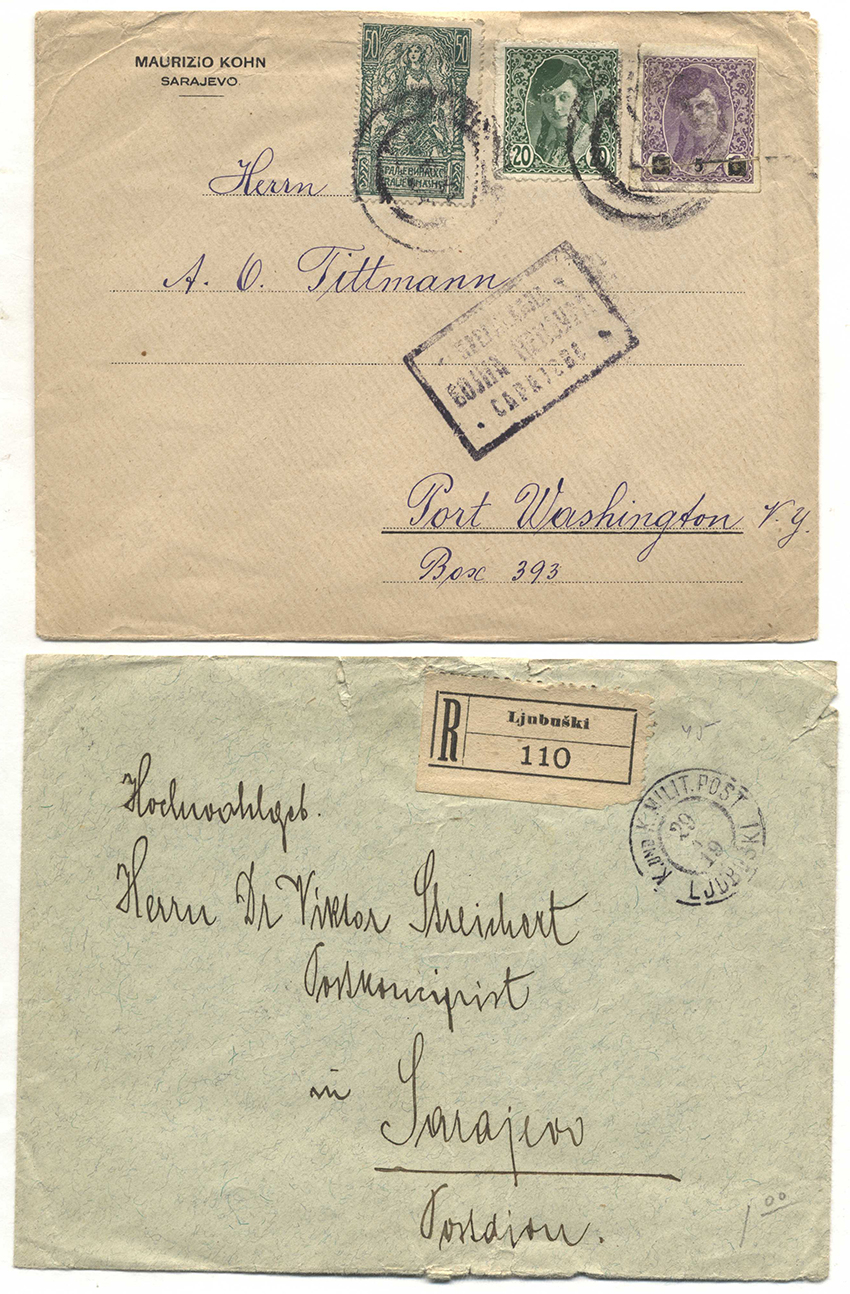 MAURIZIO KOHN
SARAJEVO.
50 50
20
5
Herrn
A. O. Tittmann
ВОЈНА ЦЕНЗУРА
САРАЈЕВО
Port Washington N. Y.
Box 393
R
Ljubuški
110
45
K. UND K. MILIT. POST
29
19
LJUBUŠKI
Hochwohlgeb.
Herrn Dr Viktor Streichert
Postkoncipist
in
Sarajevo
Postdion.
1 00